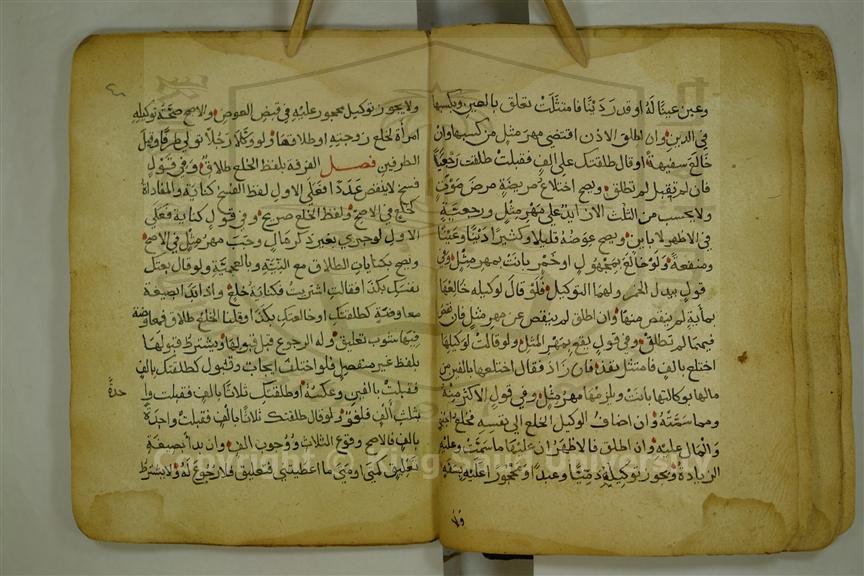 وعين عينًا لَهُ او قدر دَيْنًا فامتثلت تعلق بالعين وبكسبها
في الدين وان اطلق الاذن اقتضى مهرَ مثلٍ من كسبها وان
خالعَ سفيهةً او قال طلقتك على الفٍ فقبلتْ طلقت رجعيًا
فان لم تقبل لم تطلق ويصح اختلاع مريضةٍ مرضَ موتٍ
ولا يحسب من الثلث الا زايدٌ على مهرِ مثلٍ ورجعيةٍ
في الاظهر لا باين ويصح عوضه قليلا وكثيرا دَيْنًا وعَيْنًا
ومنفعةً ولو خالع بمجهولٍ او خمرٍ بانت بمهر مثلٍ وفي
قولٍ ببدل الخمر ولهما التوكيل فلو قال لوكيله خالعها
بمايةٍ لم ينقص منها وان اطلق لم ينقص عن مهرِ مثلٍ فان نقص
فيهما لم تطلق وفي قولٍ يقع بمهر المثل ولو قالت لوكيلها
اختلع بالفٍ فامتثل نفذ فان زاد فقال اختلعها بالفين من
مالها بوكالتها بانت ويلزمها مهر مثلٍ وفي قولٍ الاكثر منه
ومما سمّتهُ وان اضاف الوكيل الخلع الى نفسه فخلع اجنبي
والمال عليه وان اطلق فالاظهر ان عليها ما سمّت وعليه
الزيادة ويجوز توكيله ذميًا وعبدًا ومحجورا عليه بسفه
ولا
ولا يجوز توكيل محجور عليه في قبض العوض والاصح صحّة توكيله
امرأة لخلع زوجته او طلاقها ولو وكّلا رجُلًا تولى طرفًا وقيل
الطرفين فصل الفرقة بلفظ الخلع طلاق وفي قولٍ
فسخ لا ينقص عددًا فعلى الاول لفظ الفسخ كناية والمفاداة
كخلع في الاصح ولفظ الخلع صريح وفي قولٍ كناية فعلى
الاول لو جرى بغير ذكر مالٍ وجبَ مهر مثلٍ في الاصح
ويصح بكنايات الطلاق مع النيّة وبالعجمية ولو قال بعتكِ
نفسكِ بكذا فقالت اشتريت فكناية خلعٍ واذا بدا بصيغة
معاوضةٍ كطلقتك او خالعتك بكذا وقلنا الخلع طلاق فمعاوضة
فيها شوب تعليق وله الرجوع قبل قبولها ويشترط قبولها
بلفظ غير منفصل فلو اختلف ايجاب وقبول كطلقتك بالف
فقبلت بالفين وعكسه او طلقتك ثلاثًا بالفٍ فقبلت وا
حدة
بثلث ألفٍ فلغوٌ ولو قال طلقتك ثلاثًا بالفٍ فقبلتْ واحدةً
بالفٍ فالاصح وقوع الثلاث ووجوب الف وان بدأ بصيغة
تعليق كمتى او متى ما اعطيتني فتعليق فلا رجوع له ولا يشترط
Copyright © King Saud University